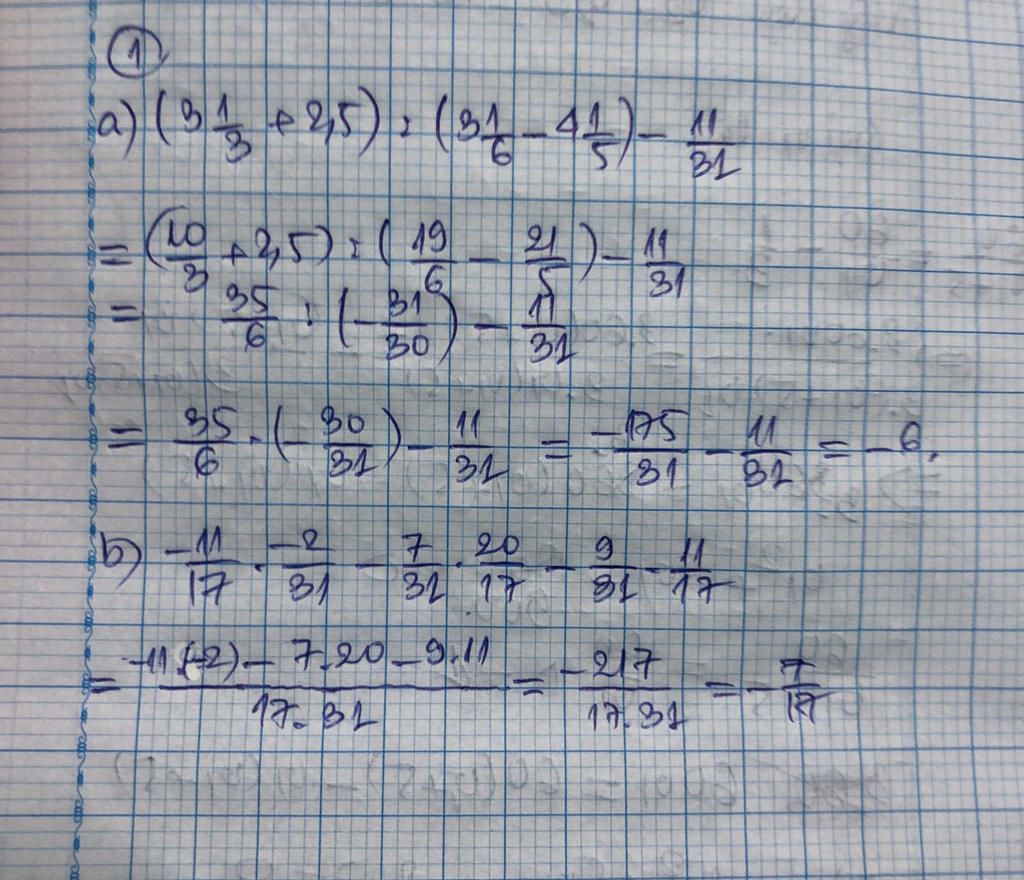 1
a) (3 1/3 + 2,5) : (3 1/6 - 4 1/5) - 11/31
= (10/3 + 2,5) : (19/6 - 21/5) - 11/31
= 35/6 : (-31/30) - 11/31
= 35/6 . (-30/31) - 11/31 = -175/31 - 11/31 = -6.
b) -11/17 . -2/31 - 7/31 . 20/17 - 9/31 . 11/17
= -11.(-2) - 7.20 - 9.11/17.31 = -217/17.31 = -7/17